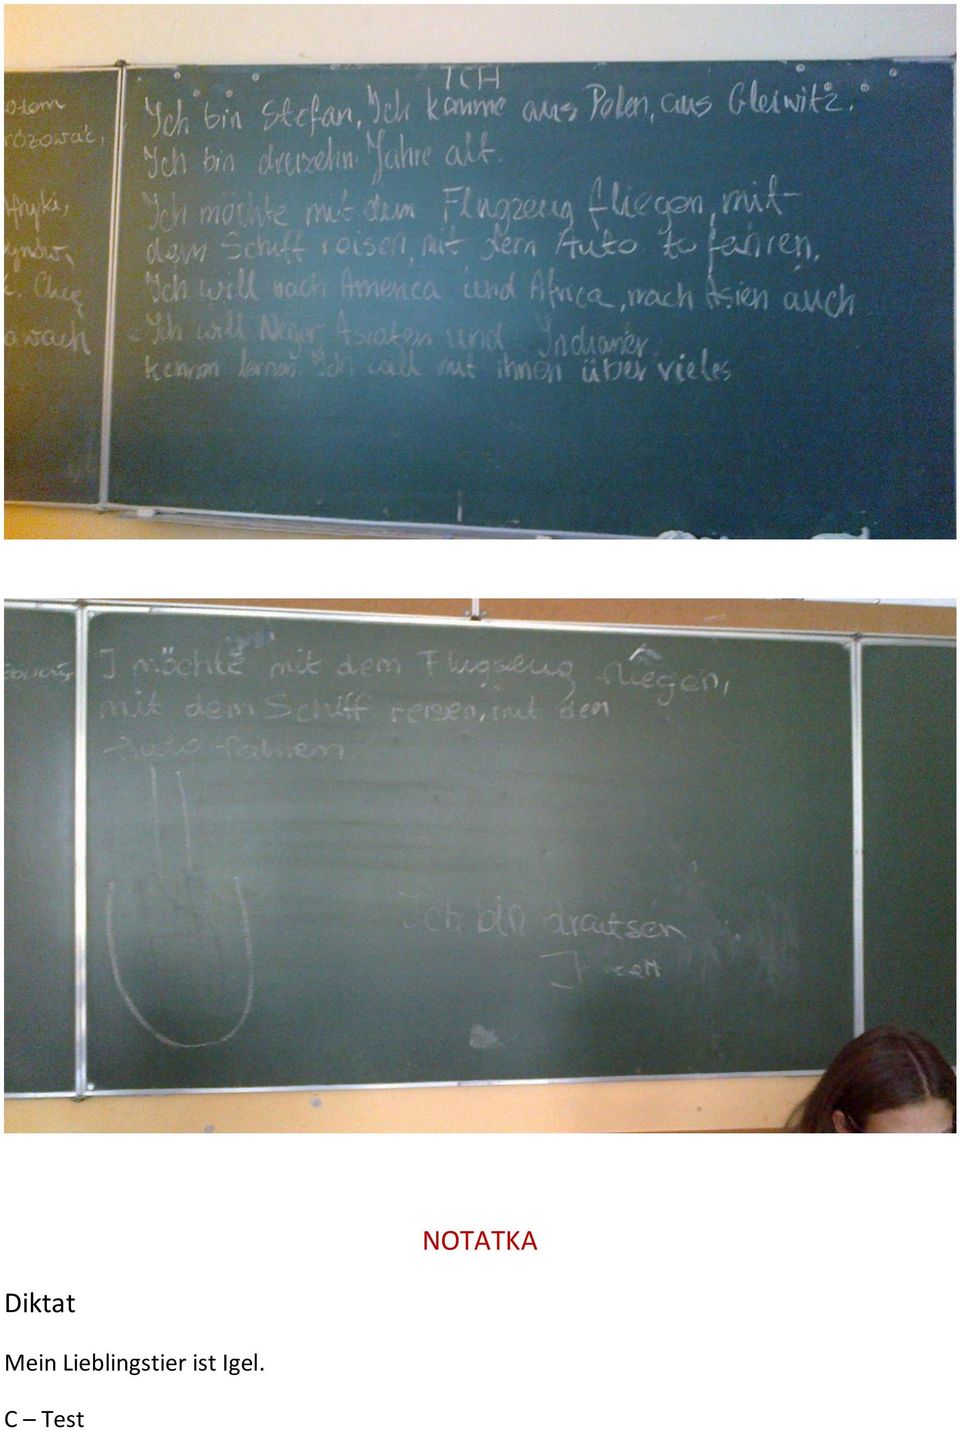 TCH
Ich bin Stefan, Ich komme aus Polen, aus Gleiwitz.
Ich bin dreizehn Jahre alt.
Ich möchte mit dem Flugzeug fliegen, mit
dem Schiff reisen, mit dem Auto to fahren.
Ich will nach America und Africa, nach Asien auch
Ich will Neger, Asiaten und Indianer
kennen lernen. Ich will mit ihnen über vieles
otem
rózować,
fryki,
. Chcę
awach
I möchte mit dem Flugzeug fliegen,
mit dem Schiff reisen, mit dem
Auto fahren.
Ich bin drautsen
NOTATKA
Diktat
Mein Lieblingstier ist Igel.
C – Test